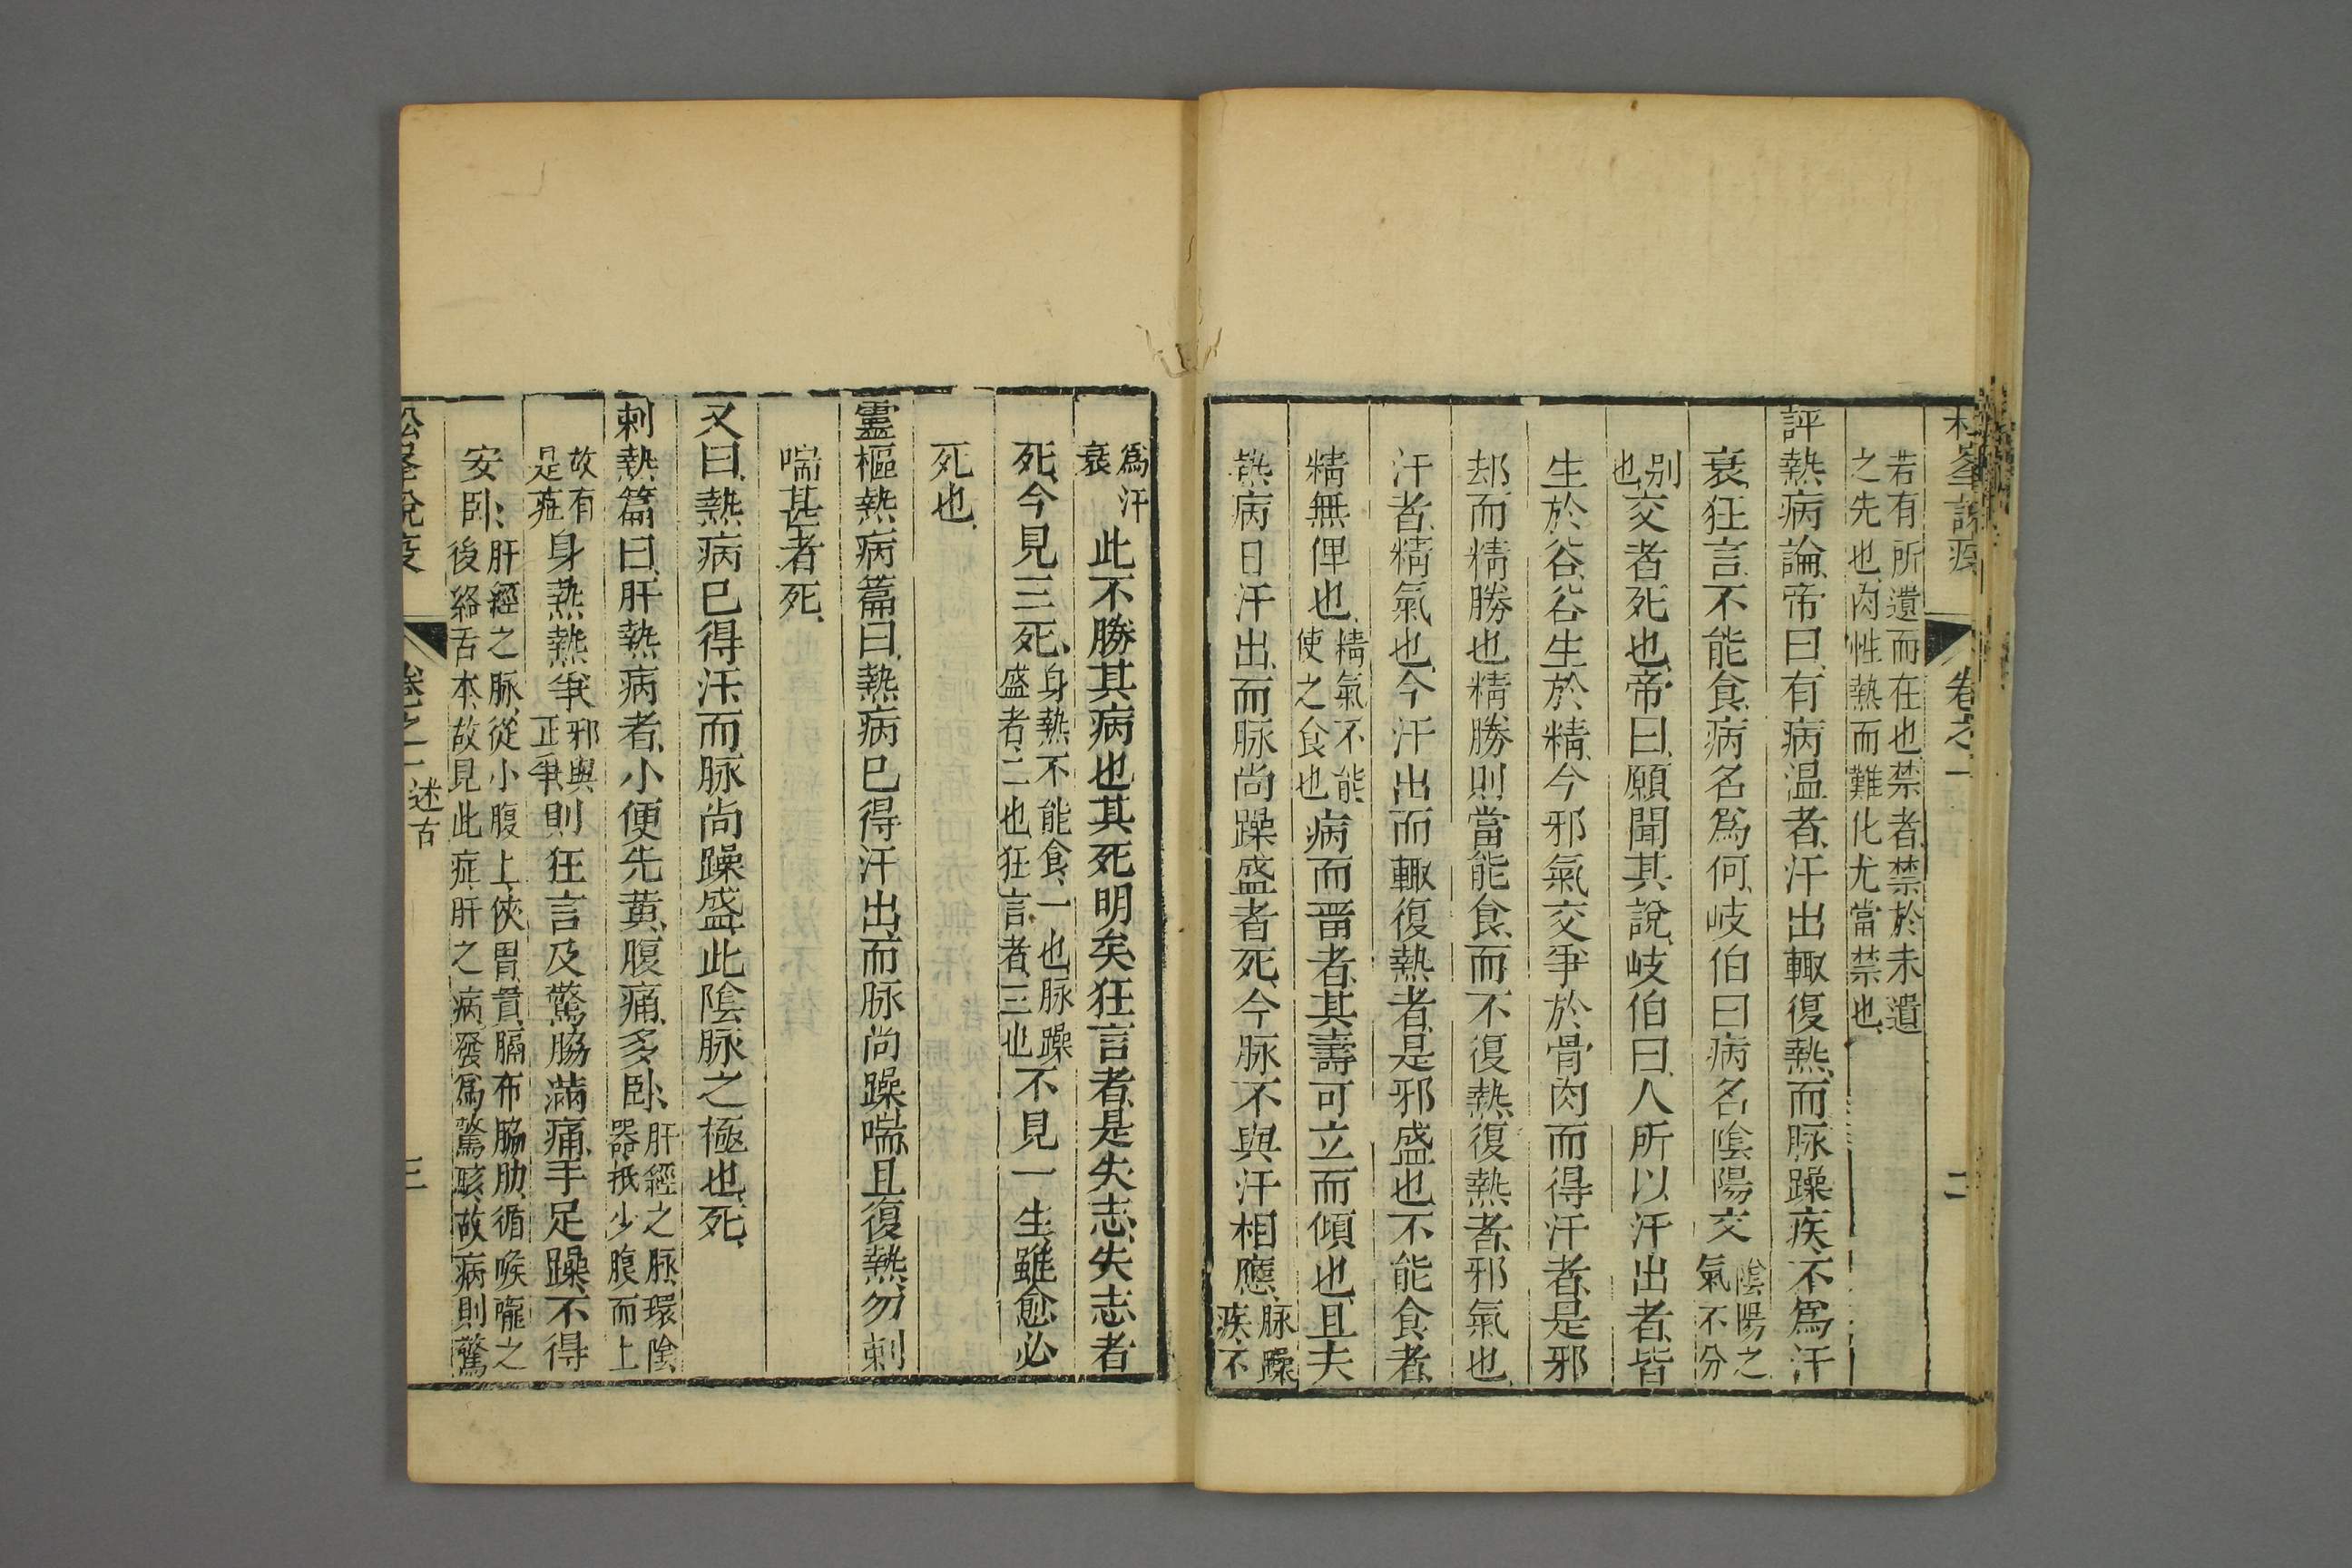 松峯說疫
卷之一
二
若有所遺而在也禁者禁於未遺
之先也肉性熱而難化尤當禁也
評熱病論帝曰有病温者汗出輙復熱而脉躁疾不爲汗
衰狂言不能食病名爲何岐伯曰病名陰陽交陰陽之
氣不分
别
也交者死也帝曰願聞其說岐伯曰人所以汗出者皆
生於谷谷生於精今邪氣交爭於骨肉而得汗者是邪
却而精勝也精勝則當能食而不復熱復熱者邪氣也
汗者精氣也今汗出而輙復熱者是邪盛也不能食者
精無俾也精氣不能
使之食也病而畱者其壽可立而傾也且夫
熱病日汗出而脉尚躁盛者死今脉不與汗相應脉躁
疾不
爲汗
衰此不勝其病也其死明矣狂言者是失志失志者
死今見三死身熱不能食一也脉躁
盛者二也狂言者三也不見一生雖愈必
死也
靈樞熱病篇曰熱病已得汗出而脉尚躁喘且復熱勿刺
喘甚者死
又曰熱病已得汗而脉尚躁盛此陰脉之極也死
刺熱篇曰肝熱病者小便先黄腹痛多卧肝經之脉環陰
器抵少腹而上
故有
是症身熱熱爭邪與
正爭則狂言及驚脇滿痛手足躁不得
安卧肝經之脉從小腹上俠胃貫膈布脇肋循喉嚨之
後絡舌本故見此症肝之病發爲驚駭故病則驚
松峯說疫
卷之一
述古
三